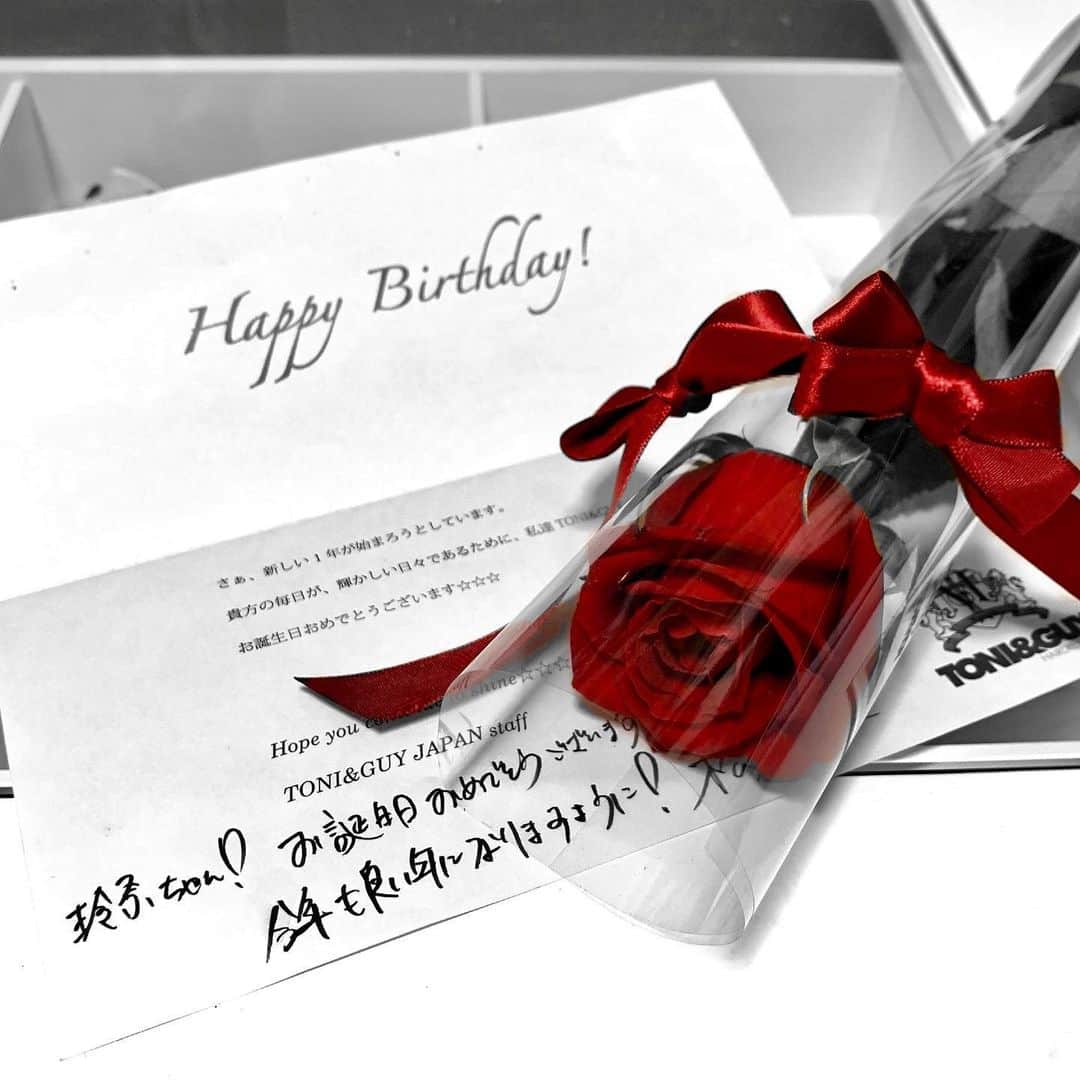 Happy Birthday!
さぁ、新しい1年が始まろうとしています。
貴方の毎日が、輝かしい日々であるために、私達TONI&G
お誕生日おめでとうございます☆☆☆
Hope you shine☆☆☆
TONI&GUY JAPAN staff
玲奈ちゃん! お誕生日おめでとうございます
今年も良い年になりますように!
TONI&GUY